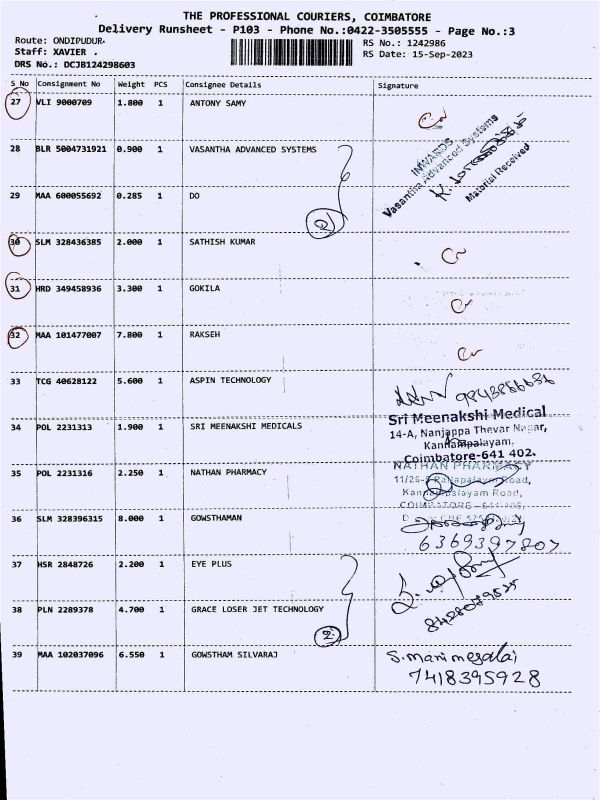 THE PROFESSIONAL COURIERS, COIMBATORE
Delivery Runsheet - P103 - Phone No.:0422-3505555 - Page No.:3
Route: ONDIPUDUR.
Staff: XAVIER .
DRS No.: DCJB124298603
RS No.: 1242986
RS Date: 15-Sep-2023
S No Consignment No Weight PCS Consignee Details Signature
27 VLI 9000709 1.800 1 ANTONY SAMY
28 BLR 5004731921 0.900 1 VASANTHA ADVANCED SYSTEMS
INWARDS
Vasantha Advanced Systems
Material Received
29 MAA 600055692 0.285 1 DO
2
30 SLM 328436385 2.000 1 SATHISH KUMAR
31 HRD 349458936 3.300 1 GOKILA
32 MAA 101477007 7.800 1 RAKSEH
33 TCG 40628122 5.600 1 ASPIN TECHNOLOGY
34 POL 2231313 1.900 1 SRI MEENAKSHI MEDICALS
Sri Meenakshi Medical
14-A, Nanjappa Thevar Nagar,
Kannampalayam,
Coimbatore-641 402.
35 POL 2231316 2.250 1 NATHAN PHARMACY
NATHAN PHARMACY
Road,
Kannampalayam Road,
COIMBATORE
36 SLM 328396315 8.000 1 GOWSTHAMAN
6369397807
37 HSR 2848726 2.200 1 EYE PLUS
38 PLN 2289378 4.700 1 GRACE LOSER JET TECHNOLOGY
2
39 MAA 102037096 6.550 1 GOWSTHAM SILVARAJ
S. Manimegalai
7418395928